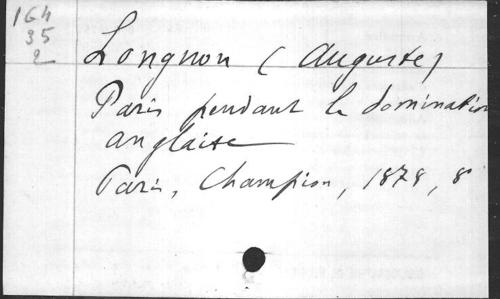 164
35
2
Longnon (Auguste)
Paris pendant la domination
anglaise
Paris, Champion, 1878, 8°